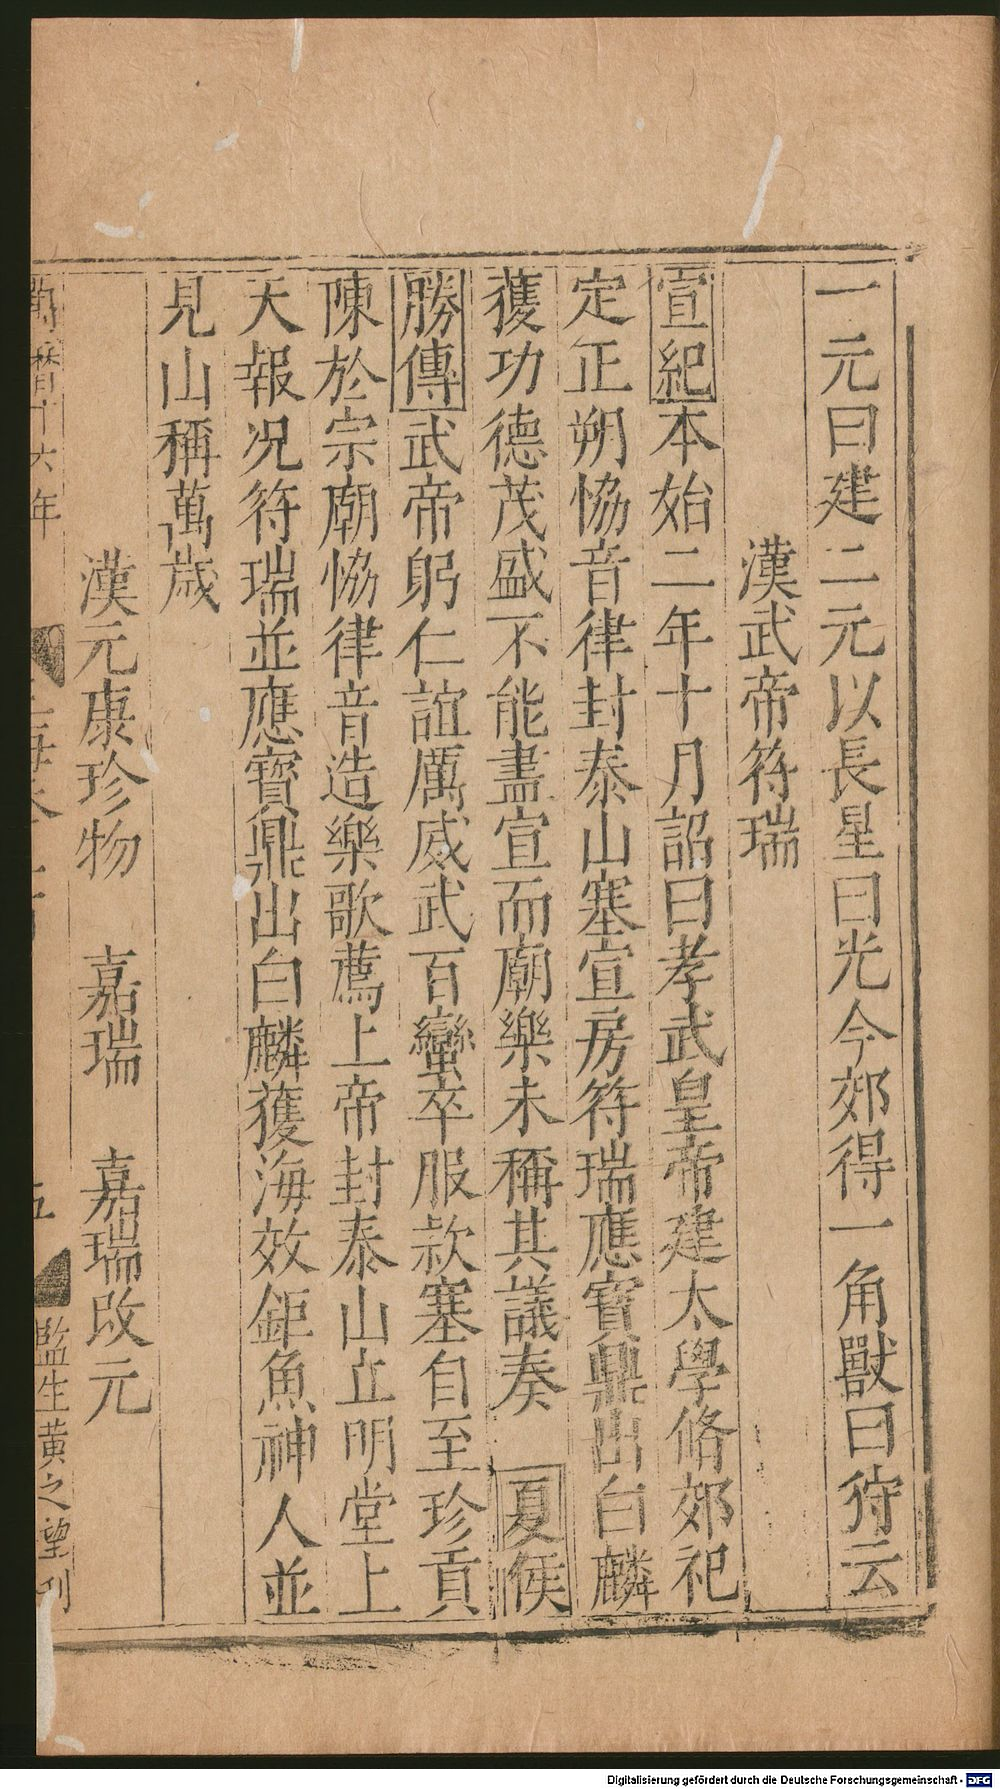 一元曰建二元以長星曰光今郊得一角獸曰狩云
漢武帝符瑞
宣紀本始二年十月詔曰孝武皇帝建太學脩郊祀
定正朔恊音律封泰山塞宣房符瑞應寶鼎出白麟
獲功德茂盛不能盡宣而廟樂未稱其議奏 夏侯
勝傳武帝躬仁誼厲威武百蠻率服款塞自至珍貢
陳於宗廟恊律音造樂歌薦上帝封泰山立明堂上
天報况符瑞並應寶鼎出白麟獲海效鉅魚神人並
見山稱萬歲
漢元康珍物 嘉瑞 嘉瑞改元
萬曆十六年 五 監生黃之望刊
Digitalisierung gefördert durch die Deutsche Forschungsgemeinschaft - DFG